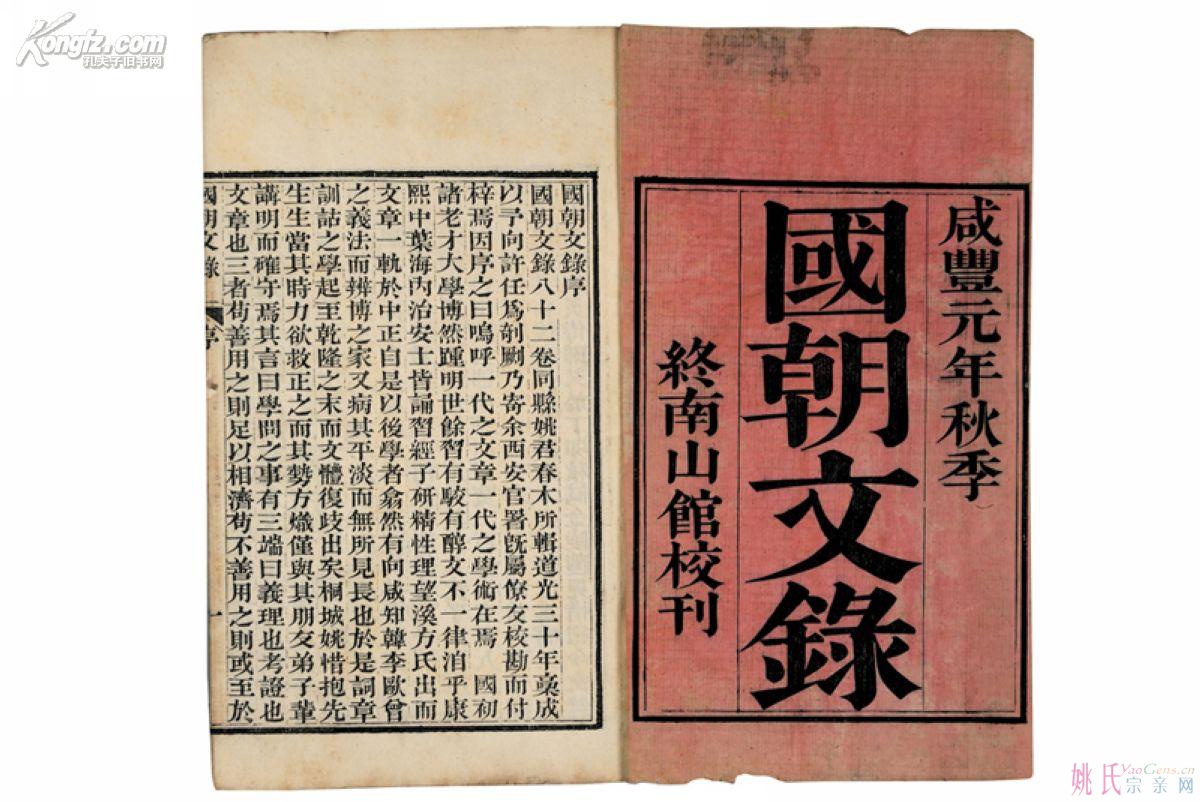 Kongfz.com
孔夫子旧书网
咸豐元年秋季
國朝文錄
終南山館校刊
國朝文錄序
國朝文錄八十二卷同縣姚君春木所輯道光三十年稾成
以予向許任爲剞劂乃寄余西安官署旣屬僚友校勘而付
梓焉因序之曰嗚呼一代之文章一代之學術在焉 國初
諸老才大學博然踵明世餘習有駁有醇文不一律洎乎康
熙中葉海內治安士皆誦習經子研精性理望溪方氏出而
文章一軌於中正自是以後學者翕然有向咸知韓李歐曾
之義法而辨博之家又病其平淡而無所見長也於是詞章
訓詁之學起至乾隆之末而文體復歧出矣桐城姚惜抱先
生生當其時力欲救正之而其勢方熾僅與其朋友弟子輩
講明而確守焉其言曰學問之事有三端曰義理也考證也
文章也三者苟善用之則足以相濟苟不善用之則或至於
國朝文錄 序 一
姚氏YaoGens.cn
宗亲网